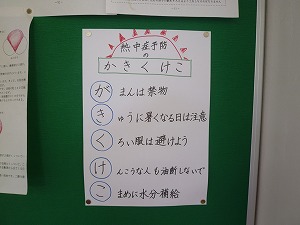 熱中症予防
の
かきくけこ
がまんは禁物
きゅうに暑くなる日は注意
くろい服は避けよう
けんこうな人も油断しないで
こまめに水分補給